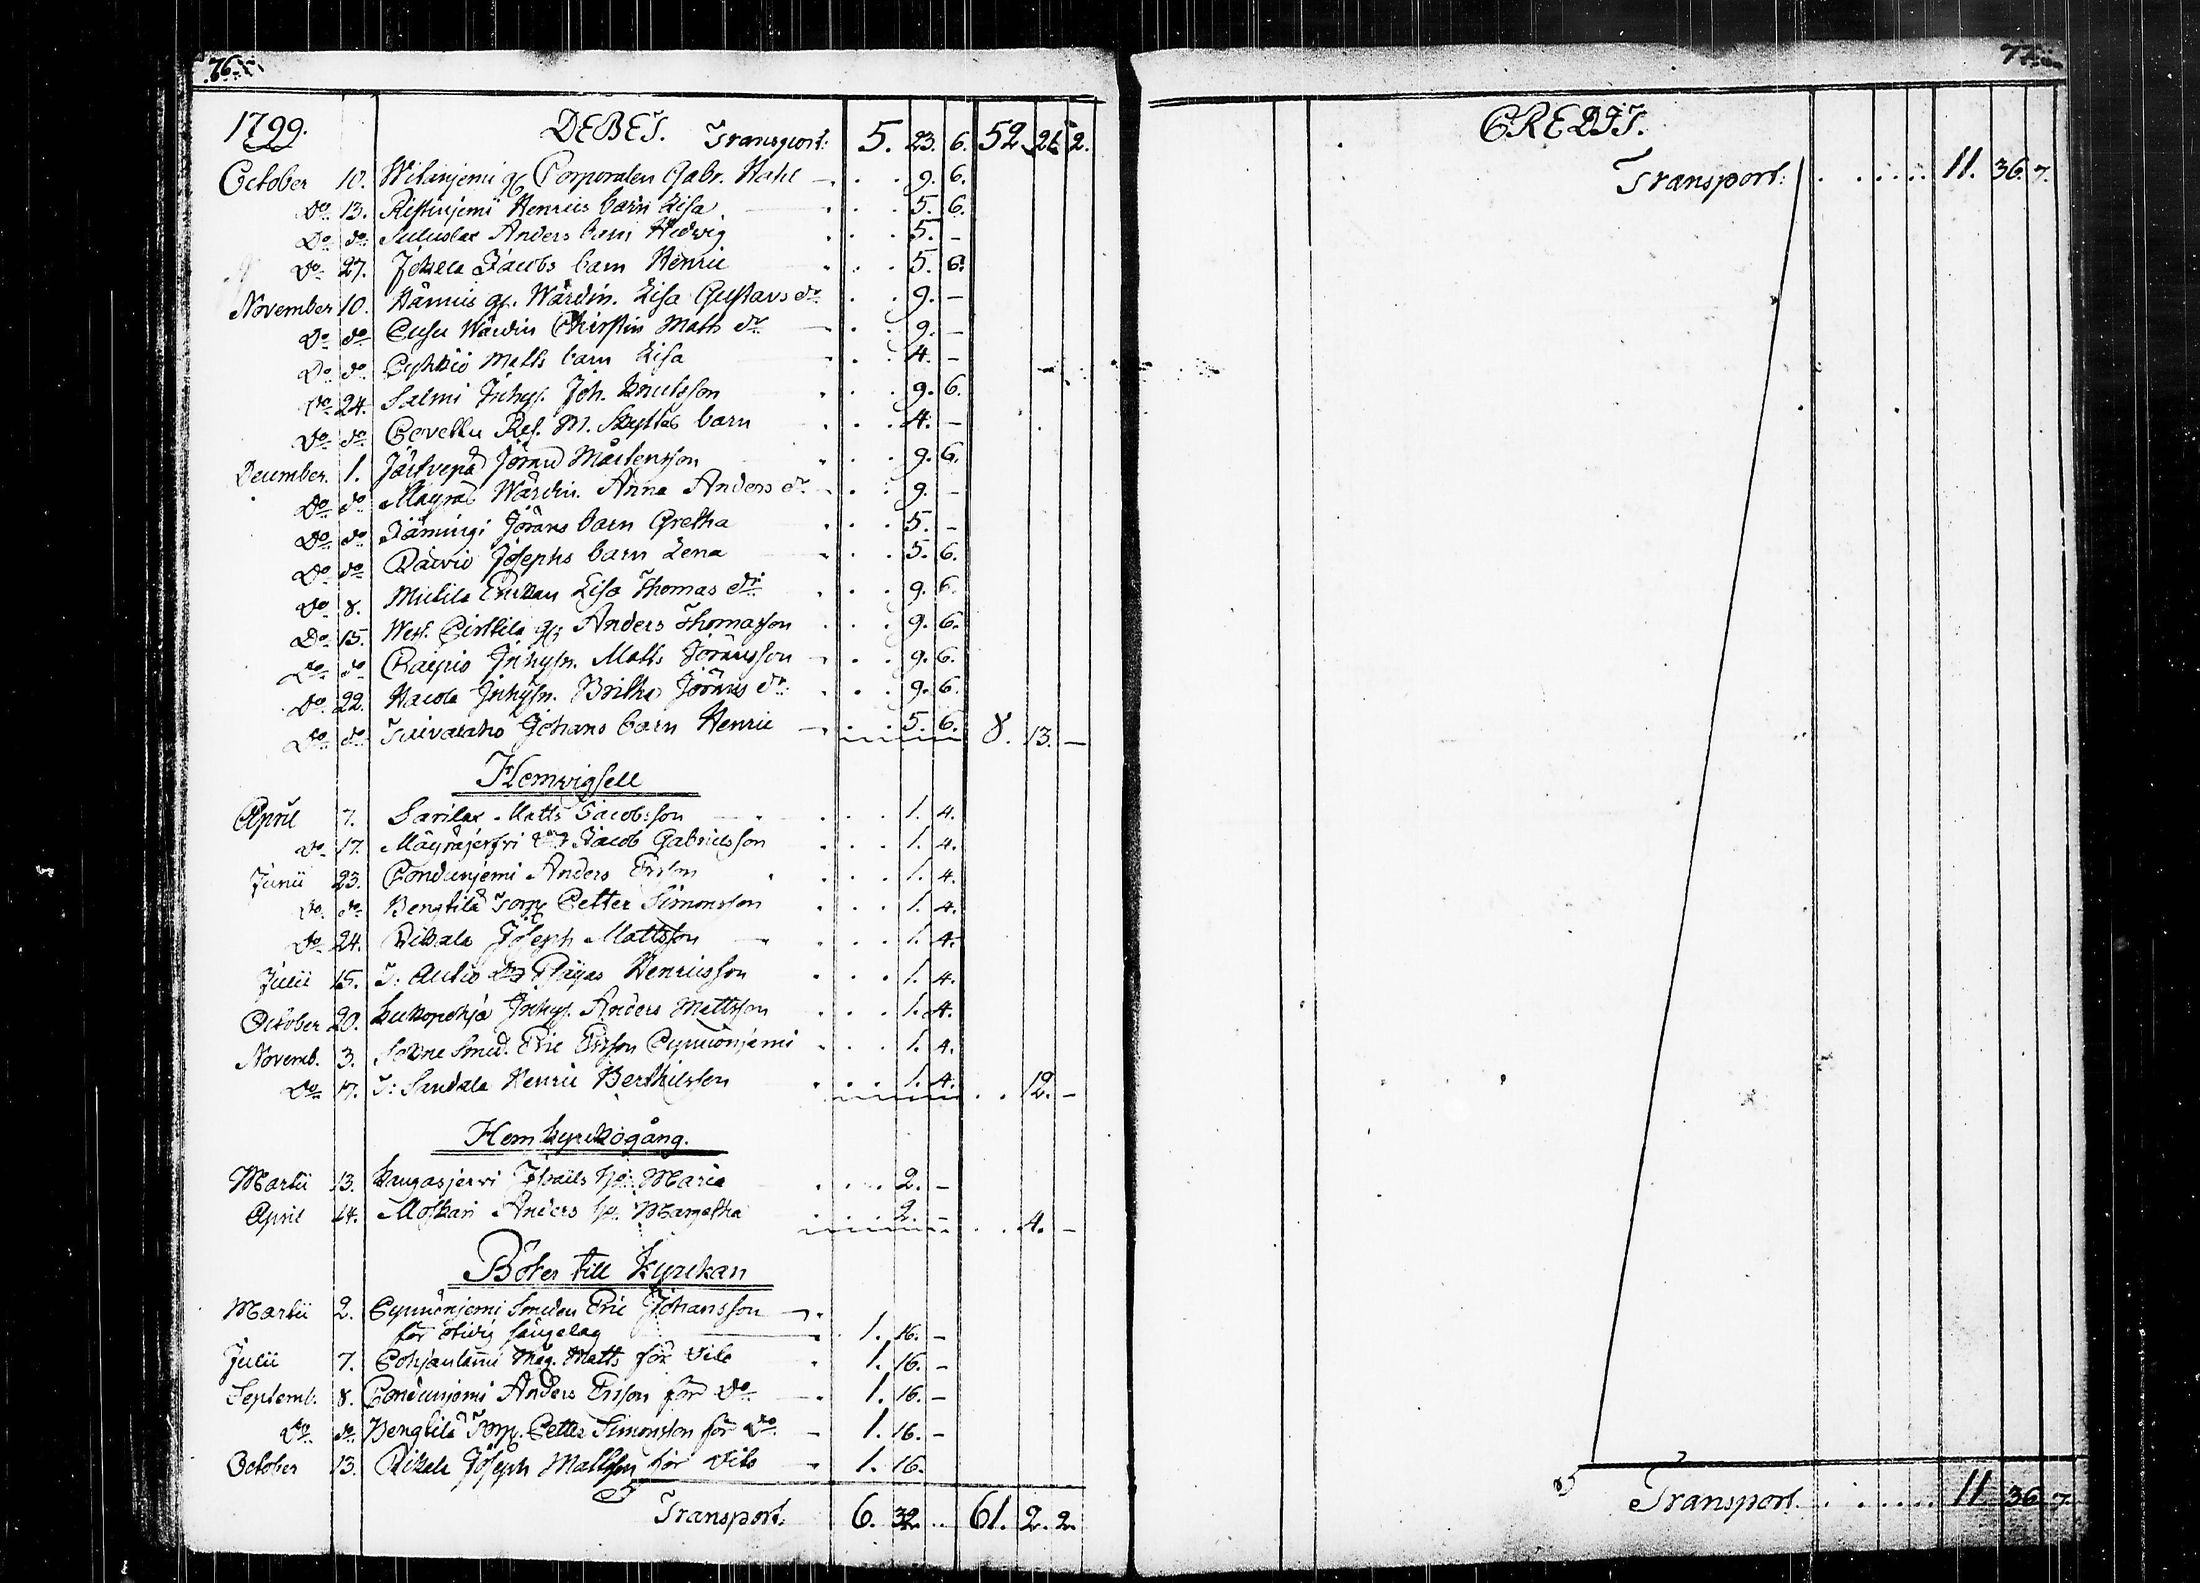 76.
1799. DEBET. Transport: 5. 23. 6. 52. 21. 2.
October 10. Corporalen Gabr. Hahl 9. 6.
Do 13. Ristinjemi Henrics barn Lisa 5. 6.
Do do Anders barn Hedvig 5. –
Do 27. Jokela Jacobs barn Henric 5. 6.
November 10. Wärdin. Lisa Gustavs dr 9. –
Do do Wärdin Christin Matts dr 9. –
Do do Matts barn Lisa 4. –
Do 24. Salmi Inhys. Joh. Knutsson 9. 6.
Do do barn 4. –
December. 1. Järfvepä Jöran Mårtensson 9. 6.
Do do Mäyräs Wärdin. Anna Anders dr 9. –
Do do Jörans barn Gretha 5. –
Do do Josephs barn Lena 5. 6.
Do 8. Mickila Enckan Lisa Thomas dr 9. 6.
Do 15. Anders Thomasson 9. 6.
Do do Raipio Inhysn. Matts Jöransson 9. 6.
Do 22. Inhysn. Britha Jörans dr 9. 6.
Do do Johans barn Henric 5. 6. 8. 13. –
Hemvigsell
April 7. Sarilax Matts Jacobsson 1. 4.
Do 17. Mäyräjerfvi Jacob Gabrielsson 1. 4.
Junii 23. Pondunjemi Anders Ersson 1. 4.
Do do Bengtilä Torp. Petter Simonsson 1. 4.
Do 24. Rikala Joseph Mattsson 1. 4.
Julii 15. T: Autio Elias Henricsson 1. 4.
October 20. Inhys. Anders Mattsson 1. 4.
Novemb. 3. Sokne Smed. Eric Ersson 1. 4.
Do 17. T: Sandala Henric Berthilsson 1. 4. 12. –
Hem kyrckogång.
Martii 13. Kangasjervi hu. Maria 2. –
April 14. Moskari Anders hu. Margetha 2. – 4. –
Böter till Kyrckan
Martii 2. Smeden Eric Johansson
för otidig sängelag 1. 16. –
Julii 7. Pohjanlami Matts för dito 1. 16. –
Septemb. 8. Pondunjemi Anders Ersson för Do 1. 16. –
Do do Bengtilä Torp. Petter Simonsson för Do 1. 16. –
October 13. Rikala Joseph Mattsson för dito 1. 16.
Transport. 6. 32. 61. 2. 2.
77.
CREDIT.
Transport: 11. 36. 7.
Transport. 11. 36. 7.